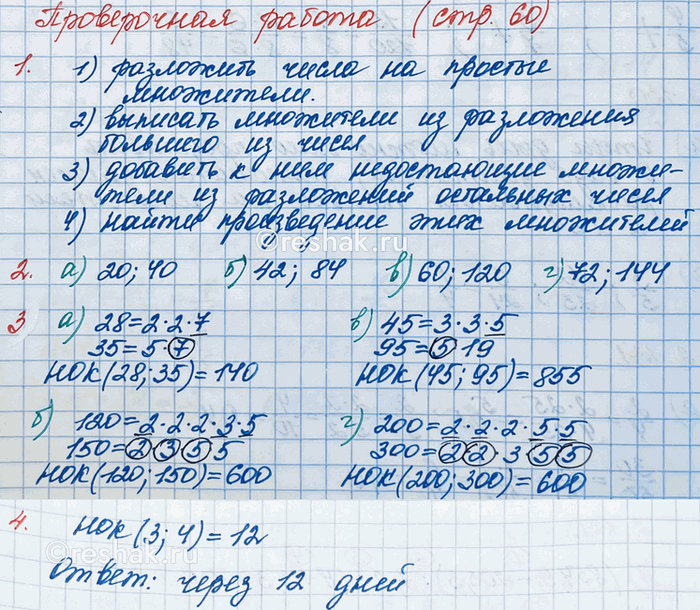 Проверочная работа (стр. 60)
1. 1) разложить числа на простые
множители.
2) выписать множители из разложения
большего из чисел
3) добавить к ним недостающие множи-
тели из разложений остальных чисел
4) найти произведение этих множителей
2. а) 20; 40 б) 42; 84 в) 60; 120 г) 72; 144
3 а) 28=2·2·7
35=5·7
НОК(28;35)=140
в) 45=3·3·5
95=5·19
НОК(45;95)=855
б) 120=2·2·2·3·5
150=2·3·5·5
НОК(120;150)=600
г) 200=2·2·2·5·5
300=2·2·3·5·5
НОК(200;300)=600
4. НОК(3;4)=12
Ответ: через 12 дней
©reshak.ru
©reshak.ru